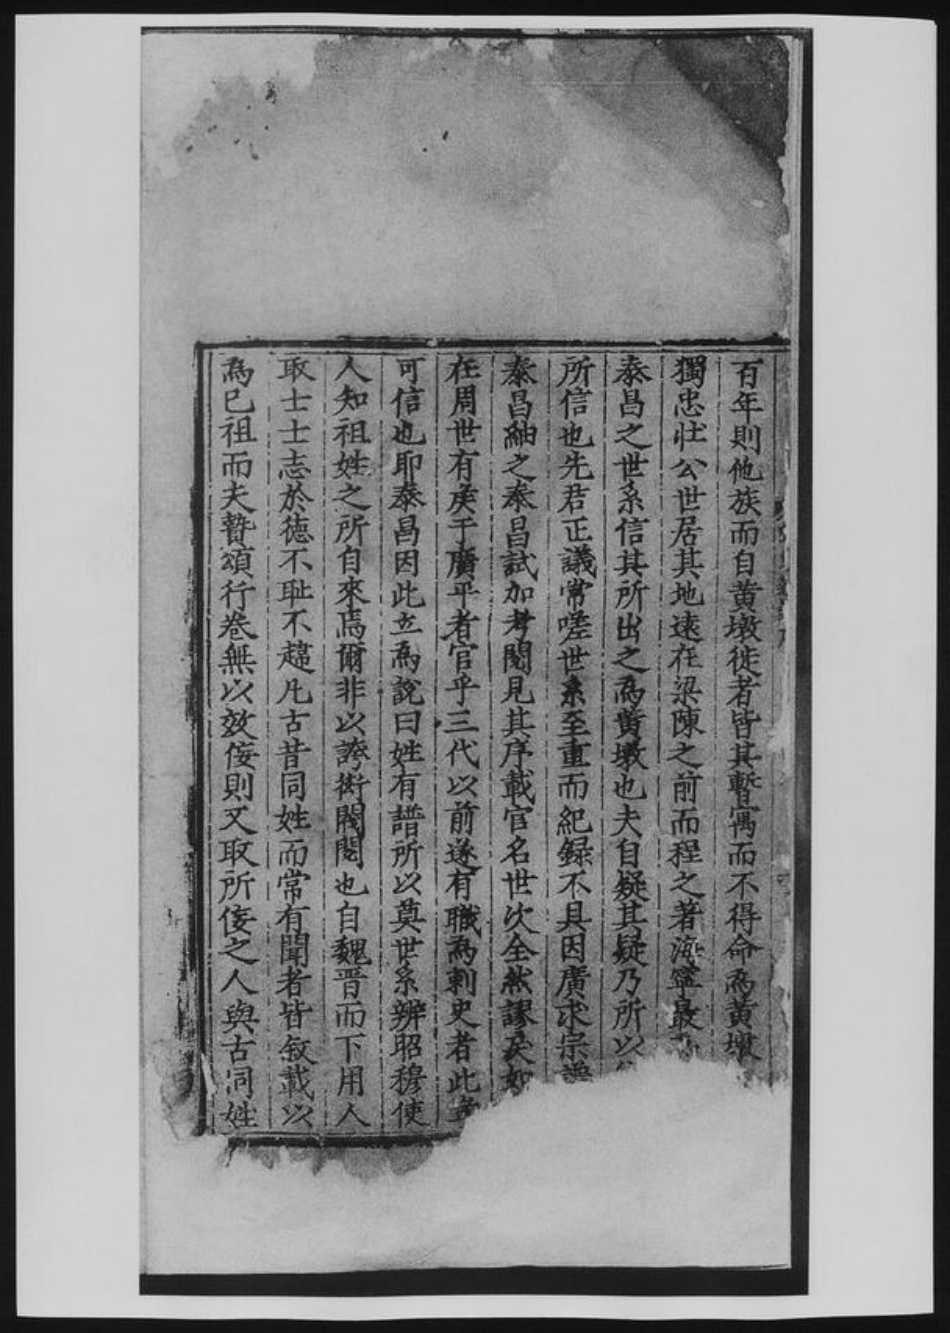 百年則他族而自黄墩徙者皆其暫寓而不得命為黄墩
獨忠壮公世居其地逺在梁陳之前而程之著海寧最
泰昌之世系信其所出之為黄墩也夫自疑其疑乃所以
所信也先君正議常嗟世系至重而紀録不具因廣求宗譜
泰昌紬之泰昌試加考閲見其序載官名世次全然謬矣如
在周世有侯于廣平者官乎三代以前遂有職為刺史者此豈
可信也耶泰昌因此立為說曰姓有譜所以奠世系辨昭穆使
人知祖姓之所自來焉爾非以誇衒閥閲也自魏晋而下用人
取士士志於徳不耻不趨凡古昔同姓而常有聞者皆叙載以
為已祖而夫贊頌行卷無以效佞則又取所佞之人與古同姓